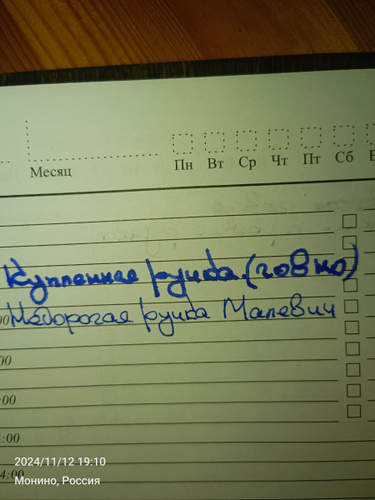 Месяц
Пн Вт Ср Чт Пт Сб
Купленная ручка (говно)
Недорогая ручка Малевич
:00
:00
:00
4:00
2024/11/12 19:10
Монино, Россия